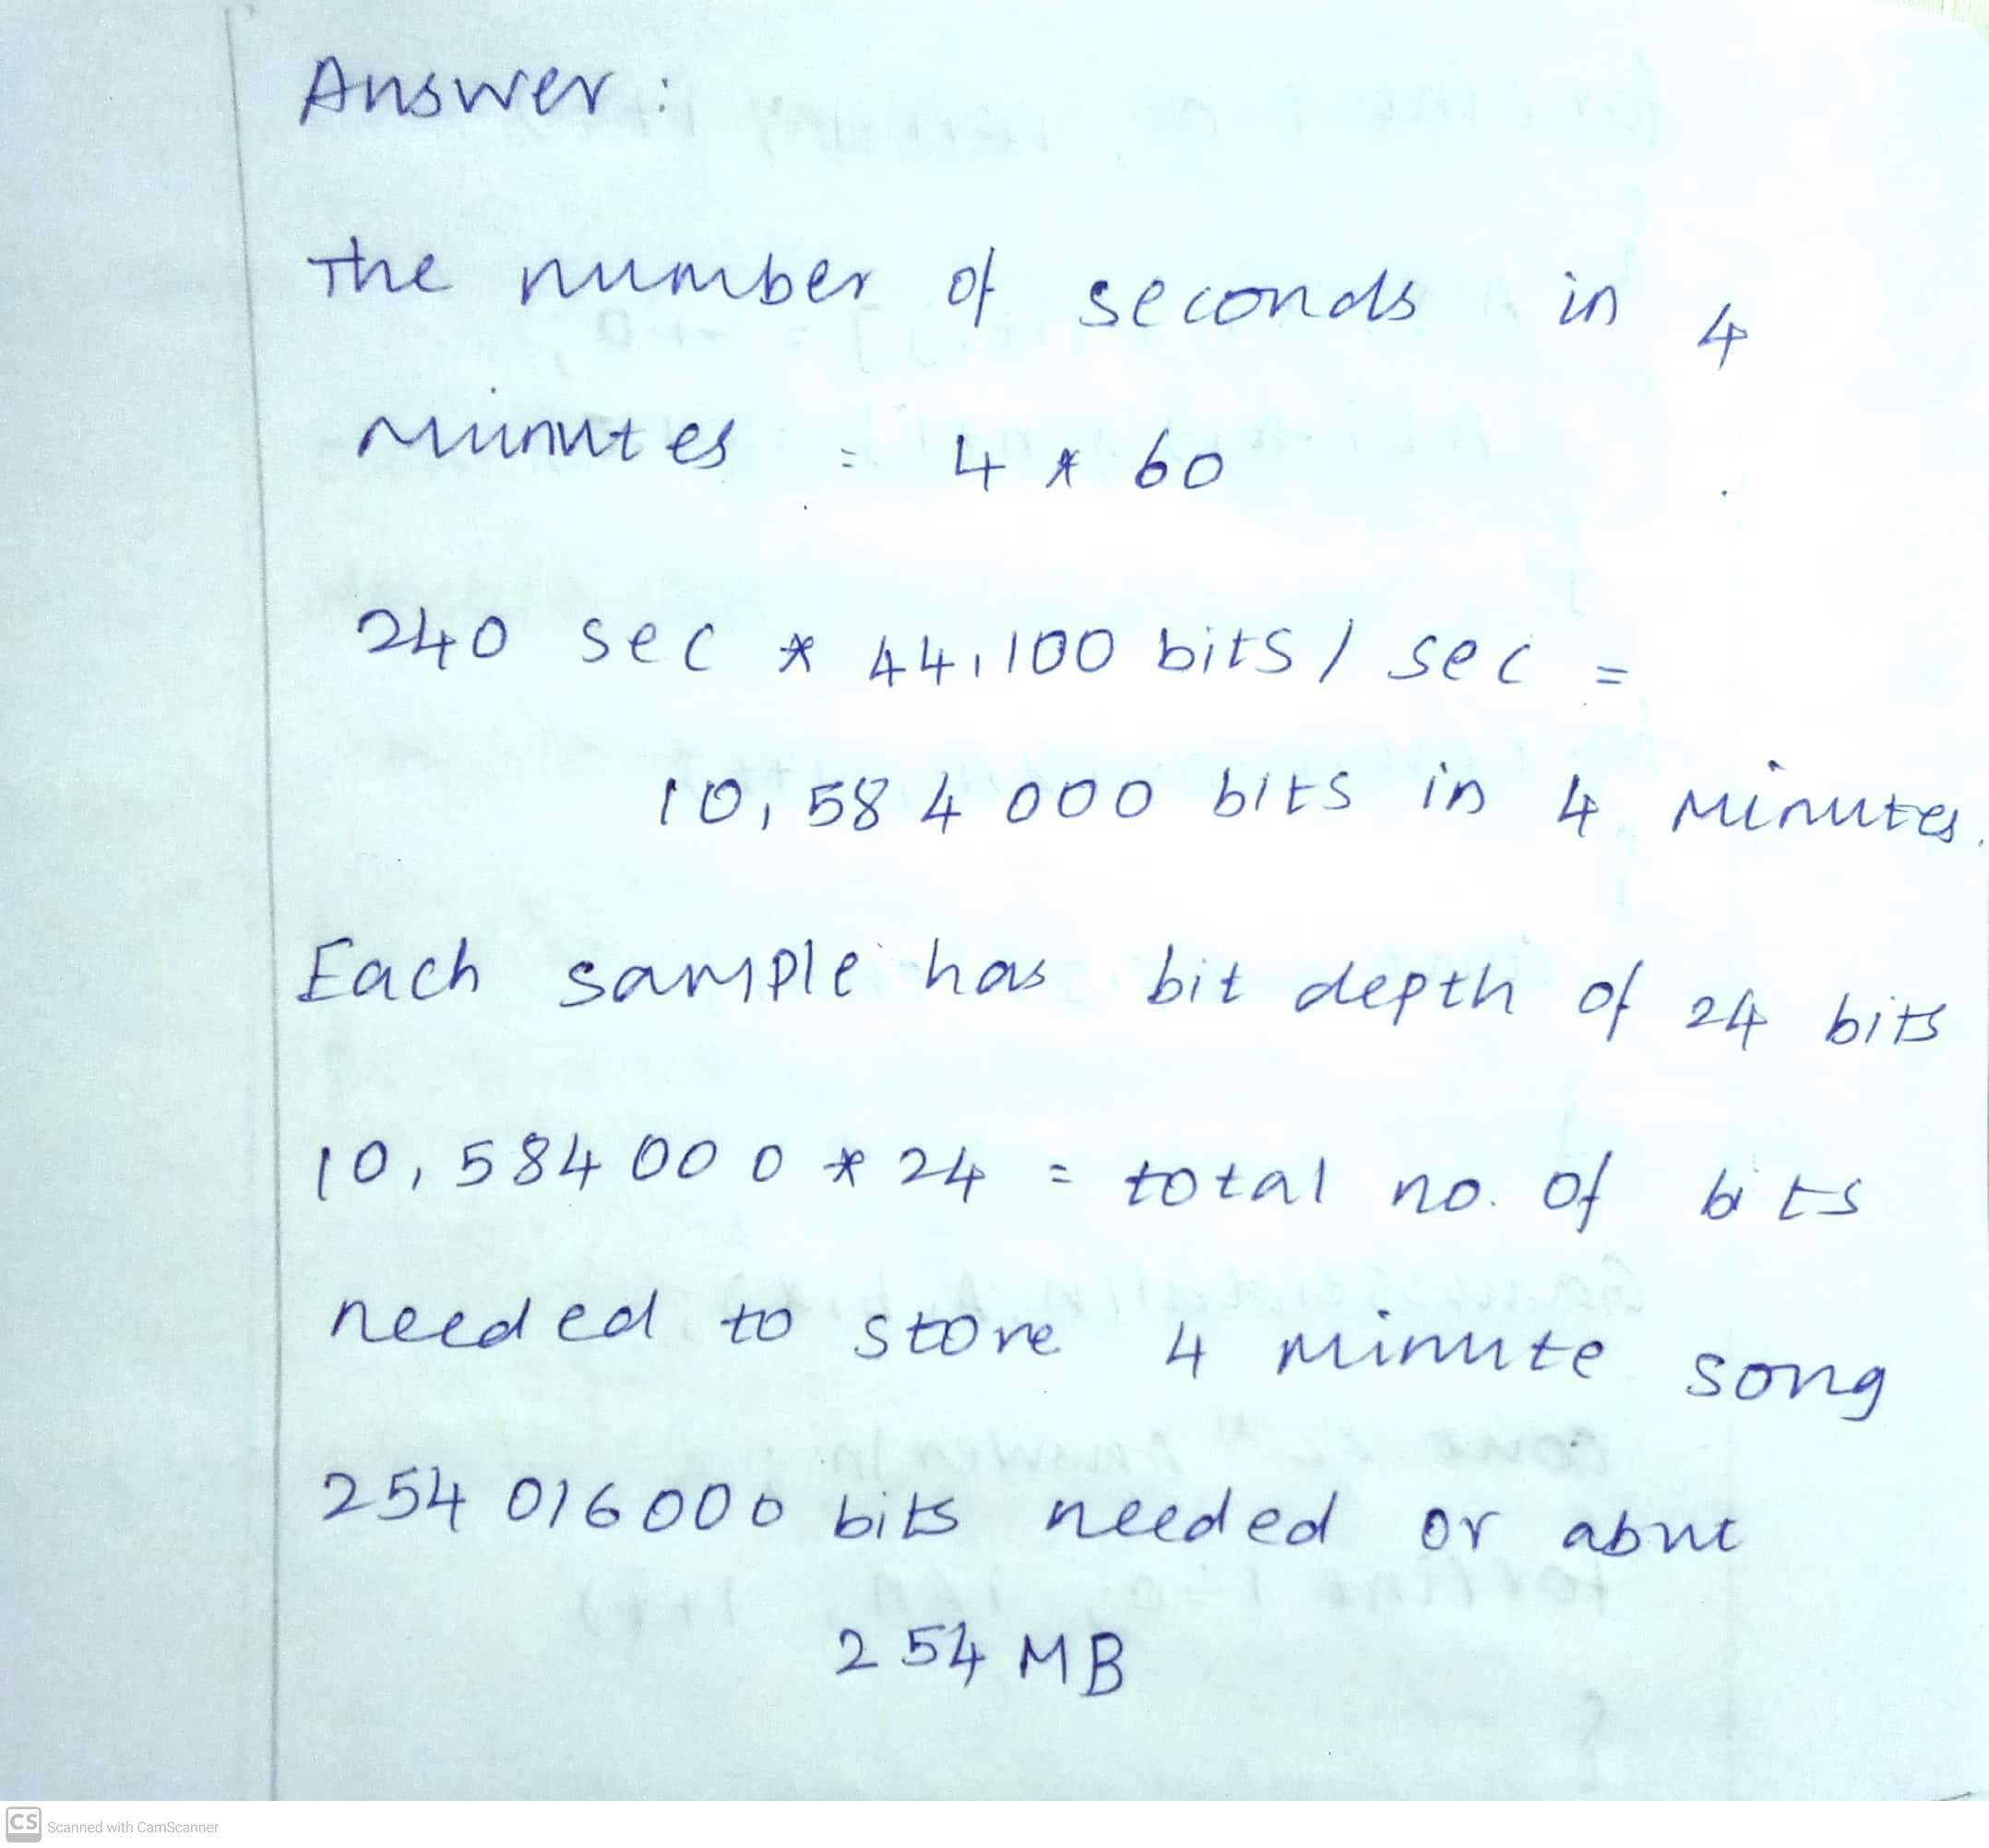 Answer :
The number of seconds in 4
Minutes = 4 * 60
240 sec * 44,100 bits / sec =
10,584000 bits in 4 Minutes.
Each sample has bit depth of 24 bits
10,584000 * 24 = total no. of bits
needed to store 4 Minute song
254016000 bits needed or abut
254 MB
CS Scanned with CamScanner